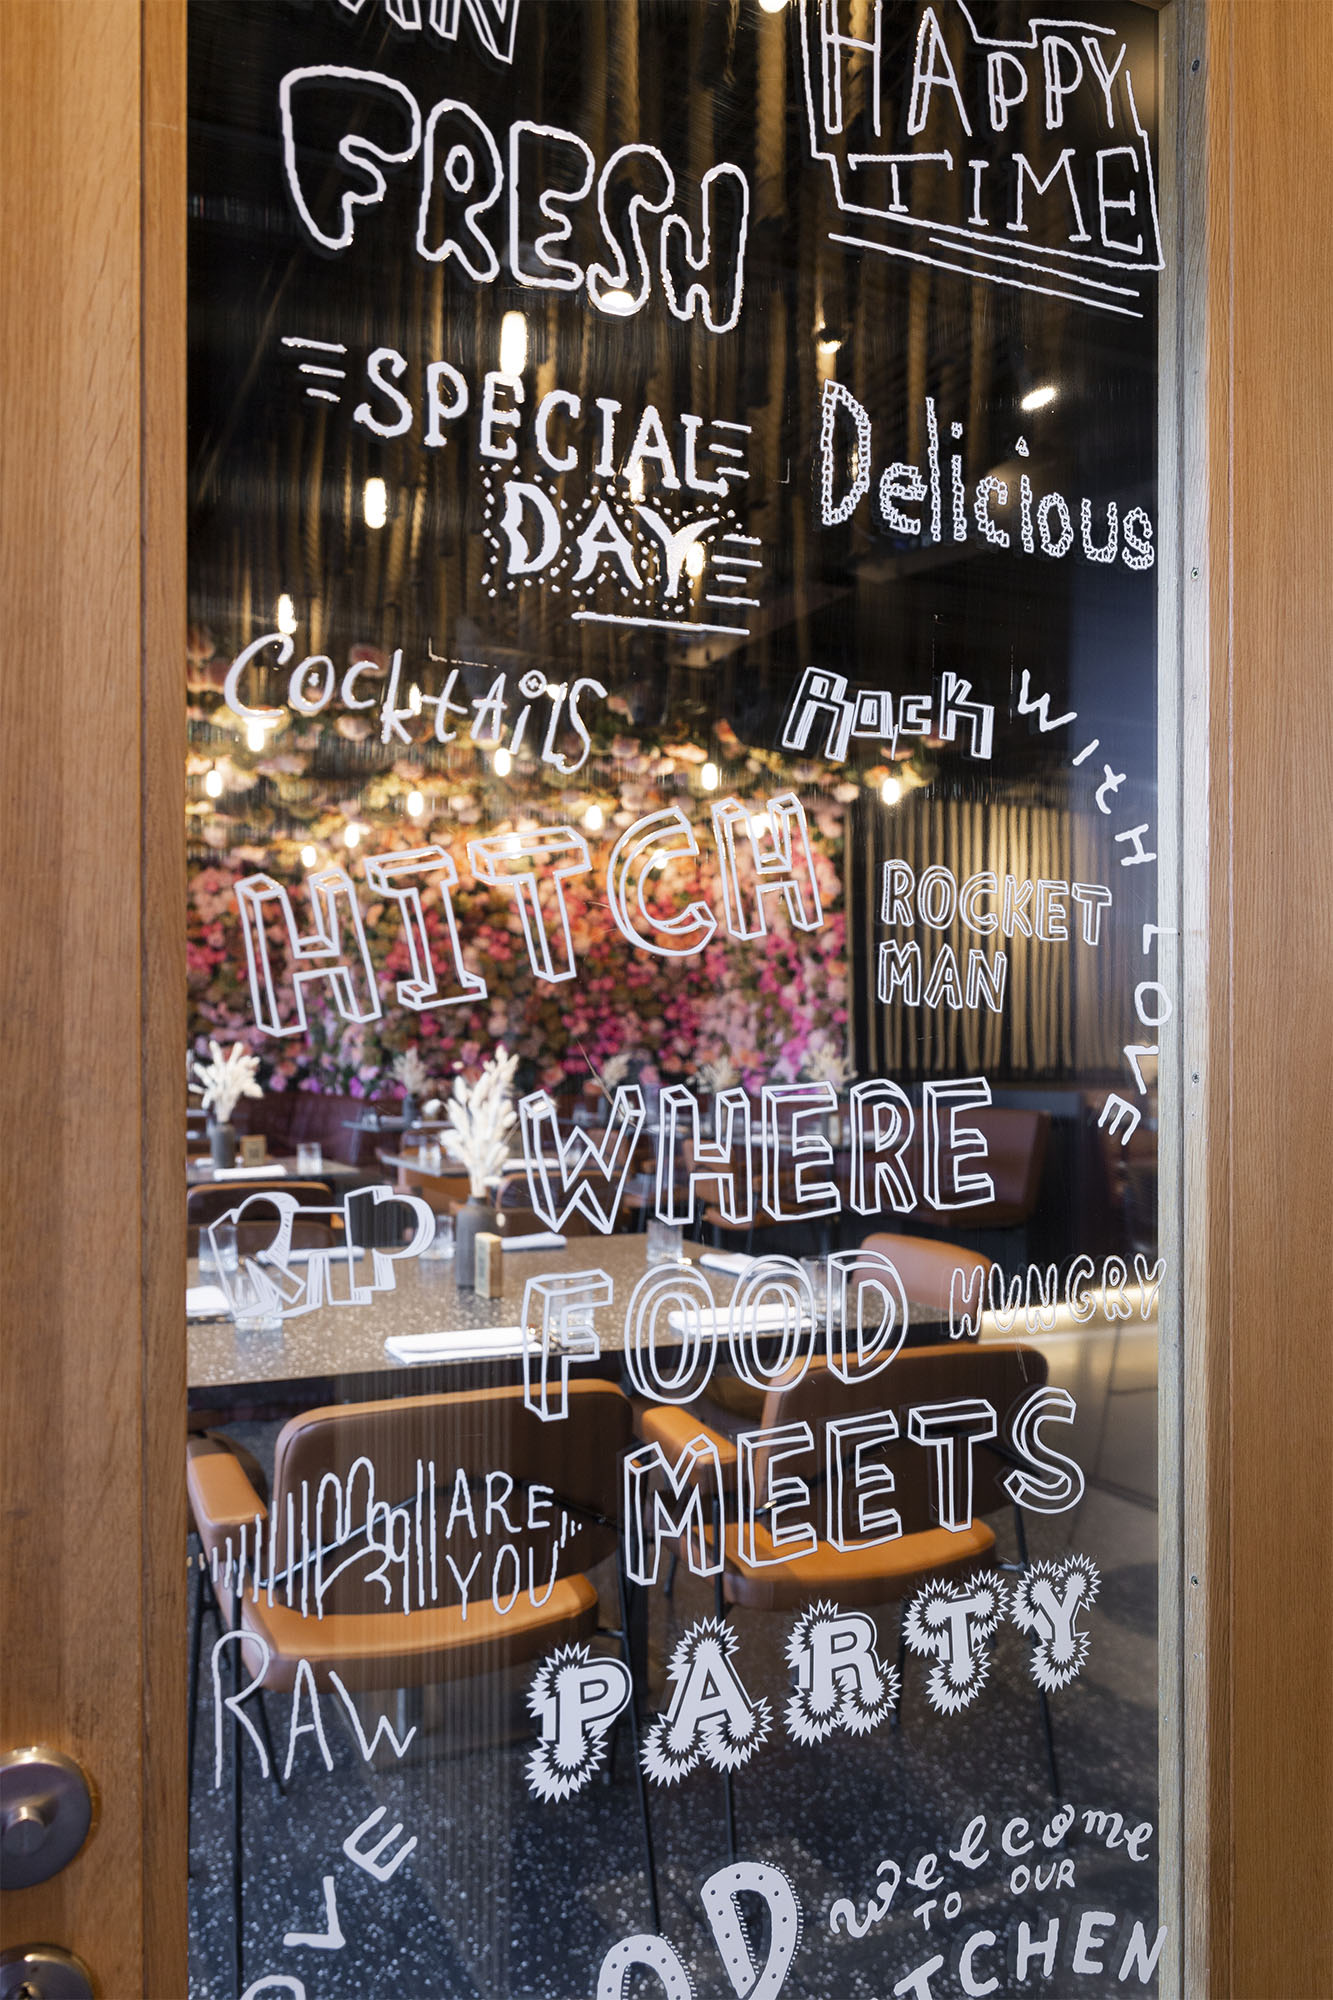 HAPPY
TIME
FRESH
SPECIAL
DAY
Delicious
Cocktails
Rock
WITH LOVE
HITCH
ROCKET
MAN
WHERE
RIP
FOOD
HUNGRY
MEETS
ARE
YOU
PARTY
RAW
Welcome
TO OUR